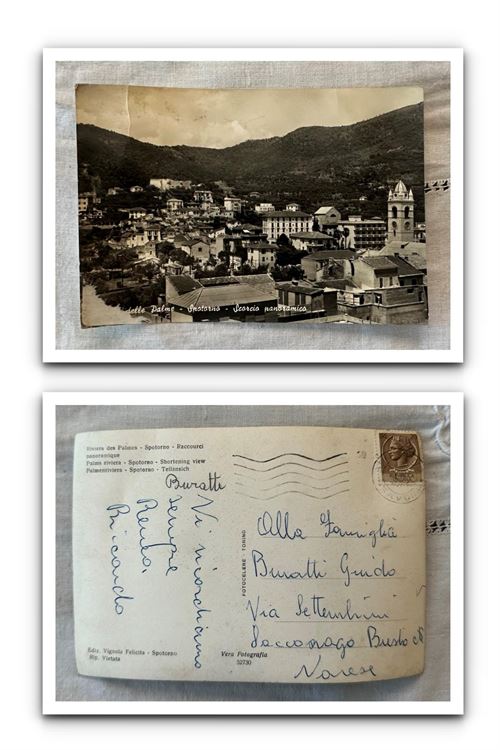 delle Palme - Spotorno - Scorcio panoramico
Riviera des Palmes - Spotorno - Raccourci
panoramique
Palm riviera - Spotorno - Shortening view
Palmenriviera - Spotorno - Teilansich
Buratti
Vi ricordiamo
sempre
Renda,
Riccardo
Ediz. Vignola Felicita - Spotorno
Rip. Vietata
FOTOCELERE - TORINO
Vera Fotografia
52730
Alla Famiglia
Buratti Guido
Via Settembrini
Sacconago Busto
Varese